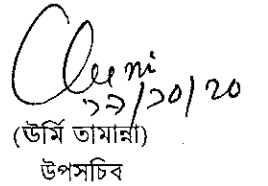 ১১/১০/২০
(ঊর্মি তামান্না)
উপসচিব